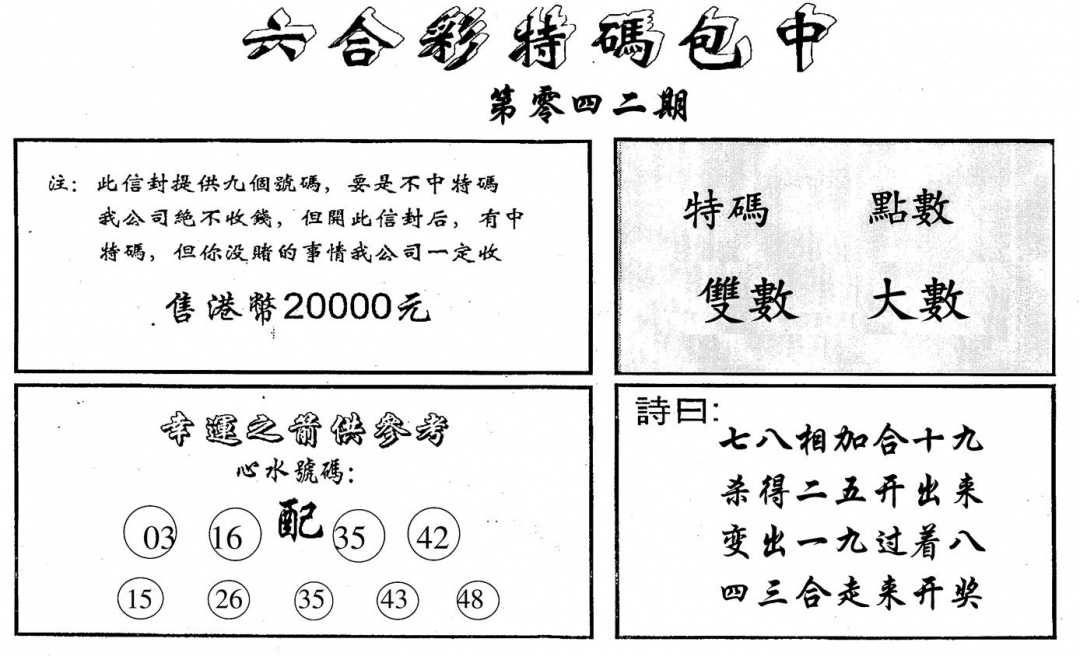 六合彩特碼包中
第零四二期
注：此信封提供九個號碼，要是不中特碼
我公司絶不收錢，但開此信封后，有中
特碼，但你没賭的事情我公司一定收
售港幣20000元
特碼 點數
雙數 大數
幸運之箭供參考
心水號碼：
03 16 配 35 42
15 26 35 43 48
詩曰：
七八相加合十九
杀得二五开出来
变出一九过着八
四三合走来开奖